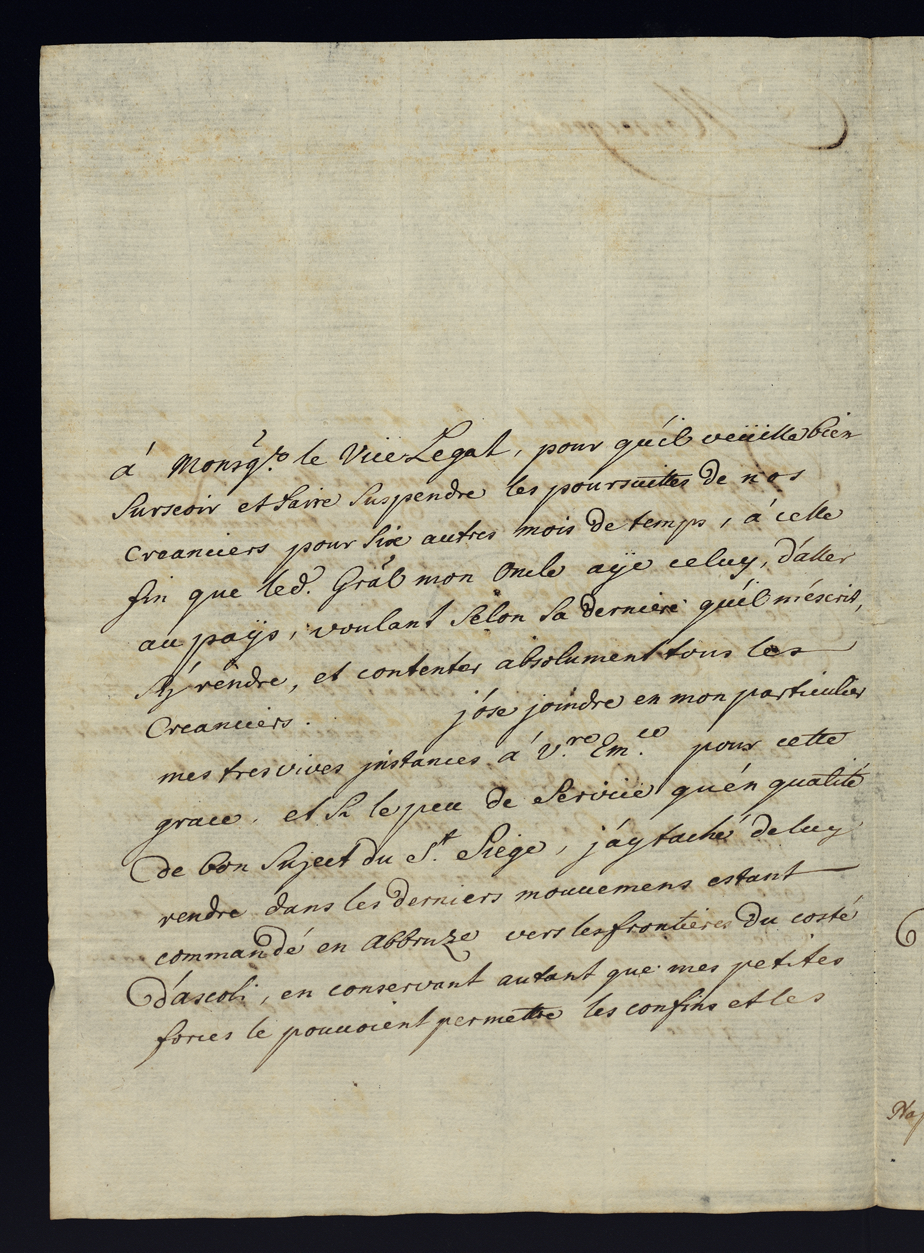 á Monsgr. le Vice Legat, pour qu'il veüille bien
surseoir et faire suspendre les poursuittes de nos
Creanciers pour six autres mois de temps, á celle
fin que led. Gräl mon Oncle aÿe celuy, d'aller
au païs, voulant selon sa derniere qu'il m'escrit,
s'ÿ rendre, et contenter absolument tous les
Creanciers. j'ose joindre en mon particulier
mes tres vives instances á V.re Em.ce pour cette
grace. et si le peu de Service qu'en qualité
de bon Sujeet du S.t Siege, j'aÿ taché de luy
rendre dans les derniers mouuemens estant
commandé en Abbruze vers les frontieres du costé
d'ascoli, en conservant autant que mes petites
forces le pouuoient permettre les confins et les